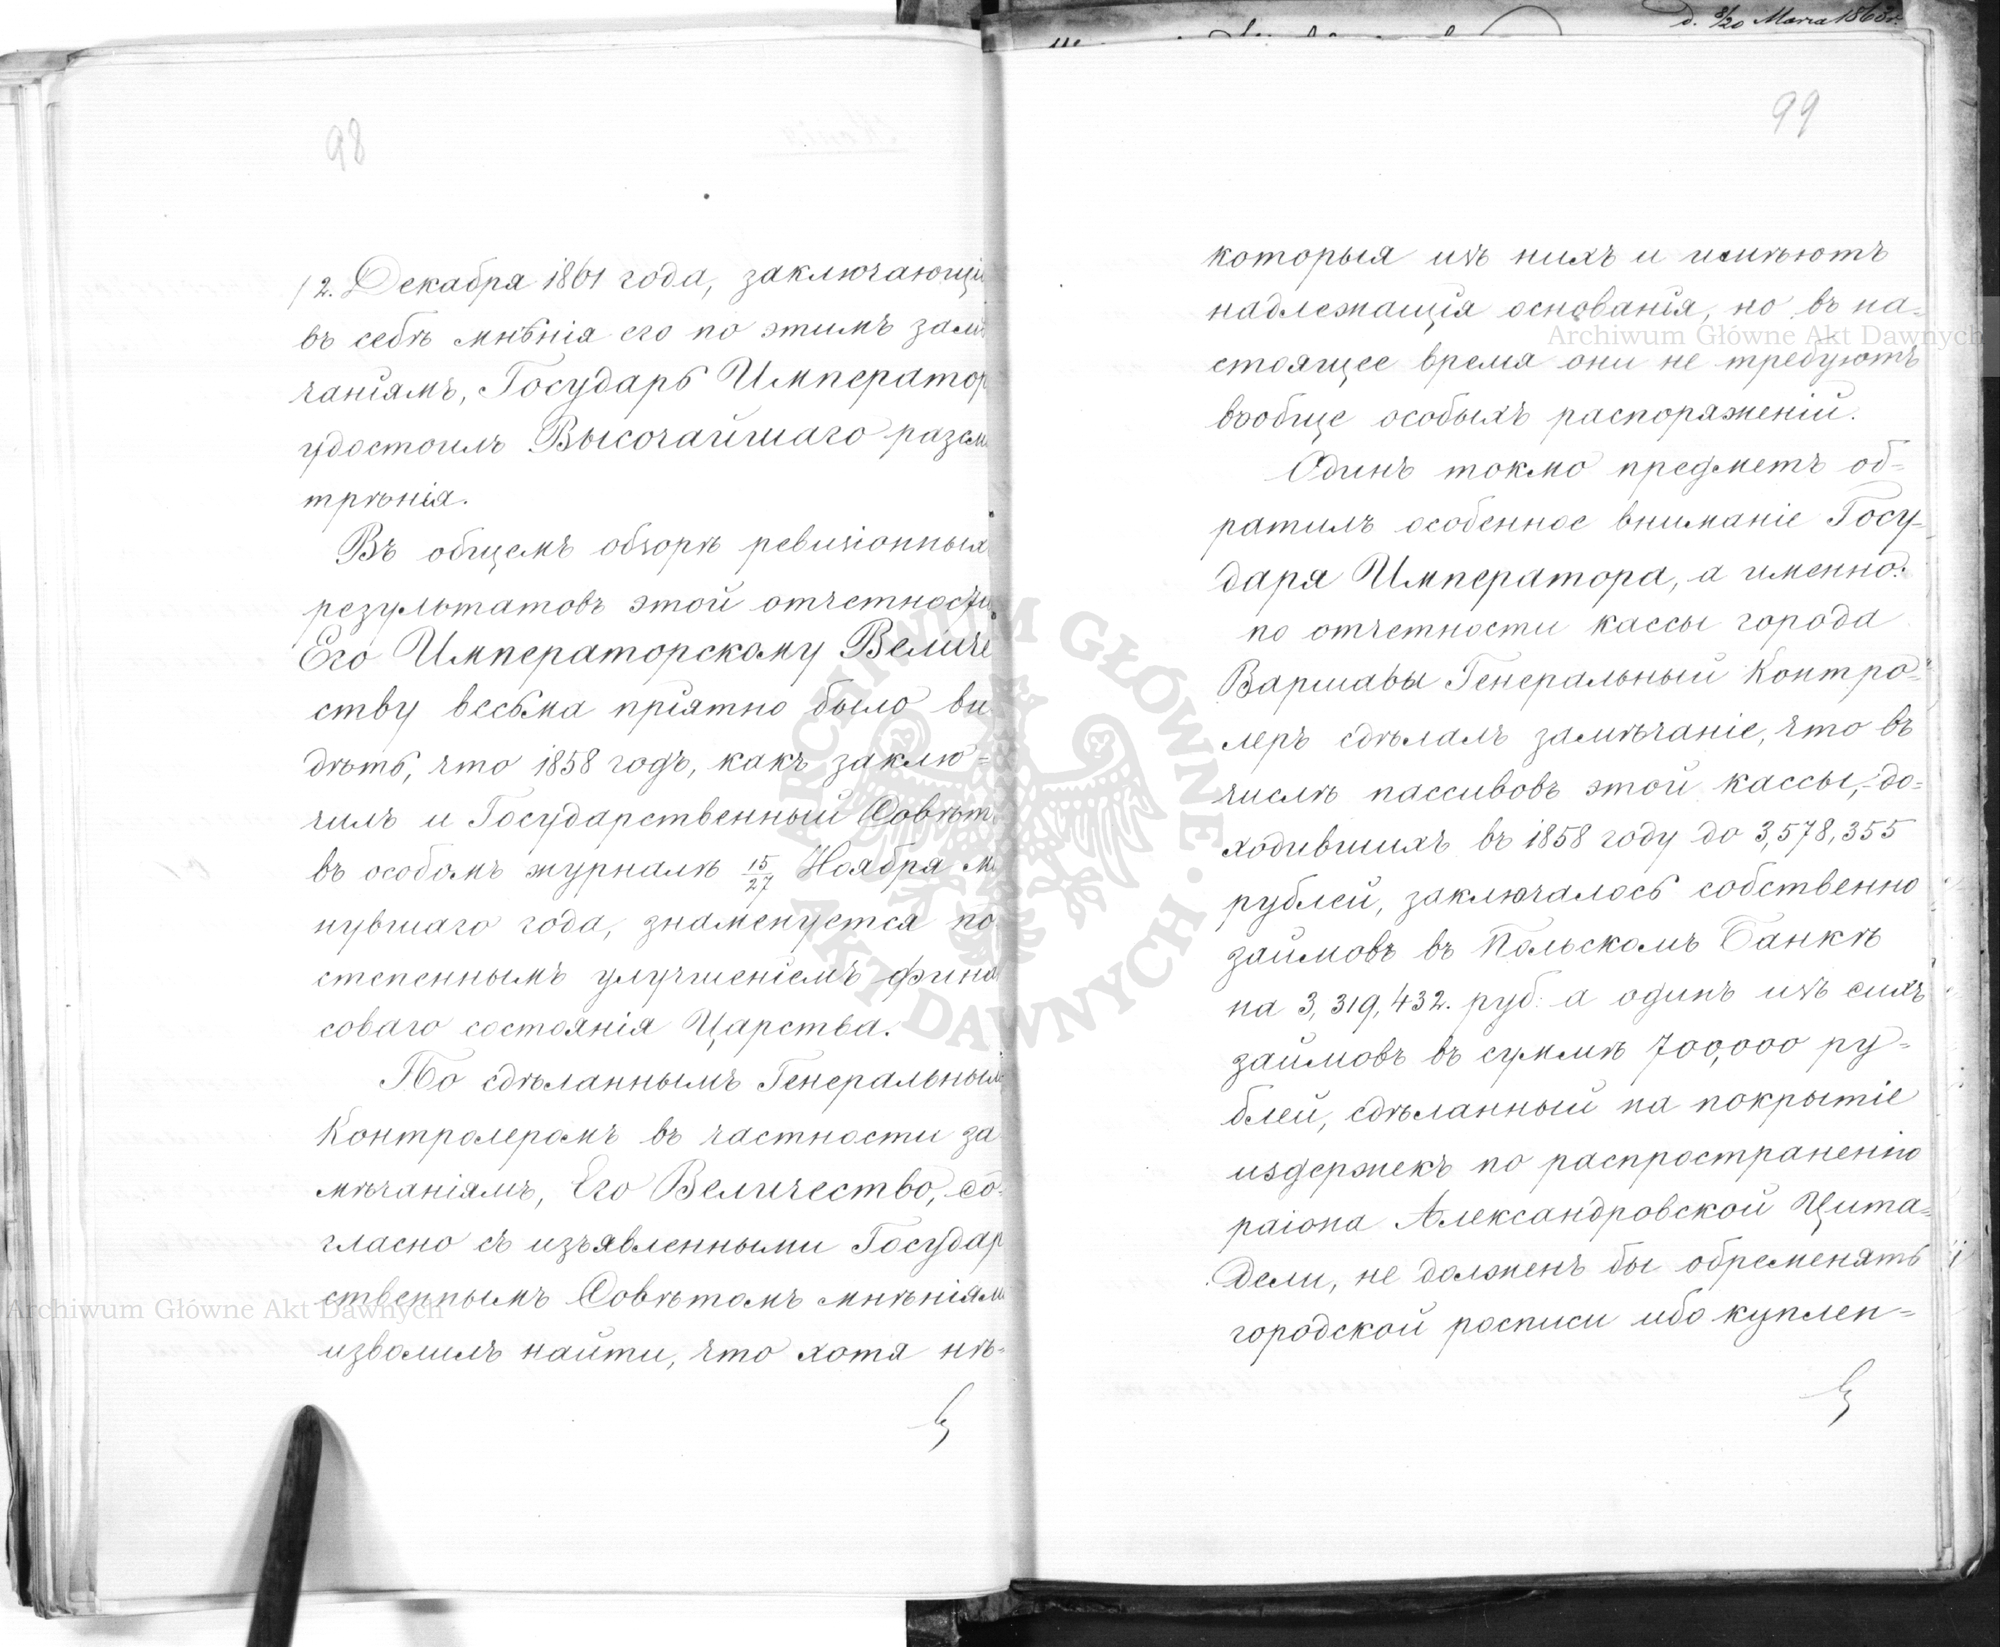 98
12. Декабря 1861 года, заключающій
въ себѣ мнѣнія его по этимъ замѣ
чаніямъ, Государь Император
удостоилъ Высочайшаго разсм
трѣнія.
Въ общемъ обзорѣ ревизіонныхъ
результатовъ этой отчетности
Его Императорскому Величе
ству весьма пріятно было ви
дѣть, что 1858 годъ, какъ заклю=
чилъ и Государственный Совѣтъ
въ особомъ журналѣ 15/27 Ноября ми
нувшаго года, знаменуется по
степеннымъ улучшеніемъ финан
соваго состоянія Царства.
По сдѣланнымъ Генеральнымъ
Контролеромъ въ частности за
мѣчаніямъ, Его Величество, со=
гласно съ изъявленными Государ
ственнымъ Совѣтомъ мнѣніям
изволилъ найти, что хотя нѣ=
99
которыя изъ нихъ и имѣютъ
надлежащія основанія, но въ на=
стоящее время они не требуютъ
вообще особыхъ распоряженій.
Одинъ токмо предметъ об=
ратилъ особенное вниманіе Госу=
даря Императора, а именно:
по отчетности кассы города
Варшавы Генеральный Контро=
леръ сдѣлалъ замѣчаніе, что въ
числѣ пассивовъ этой кассы, до=
ходившихъ въ 1858 году до 3,578,355
рублей, заключалось собственно
займовъ въ Польскомъ Банкѣ
на 3,319,432. руб: а одинъ изъ сихъ
займовъ въ суммѣ 700,000 ру=
блей, сдѣланный на покрытіе
издержекъ по распространенію
раіона Александровской Цита=
дели, не долженъ бы обременять
городской росписи ибо куплен=
д. 8/20 Марта 186
Archiwum Główne Akt Dawnych
Archiwum Główne Akt Dawnych
ARCHIWUM GŁÓWNE AKT DAWNYCH